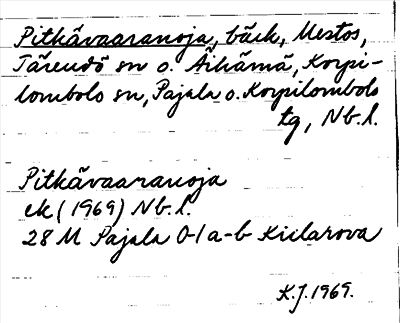 Pitkävaaranoja, bäck, Mestos,
Tärendö sn o. Äihämä, Korpi-
lombolo sn, Pajala o. Korpilombolo
tg, Nb. l.
Pitkävaaranoja
ek (1969) Nb. l.
28 M Pajala 0-1 a-b Kielarova
K.J. 1969.